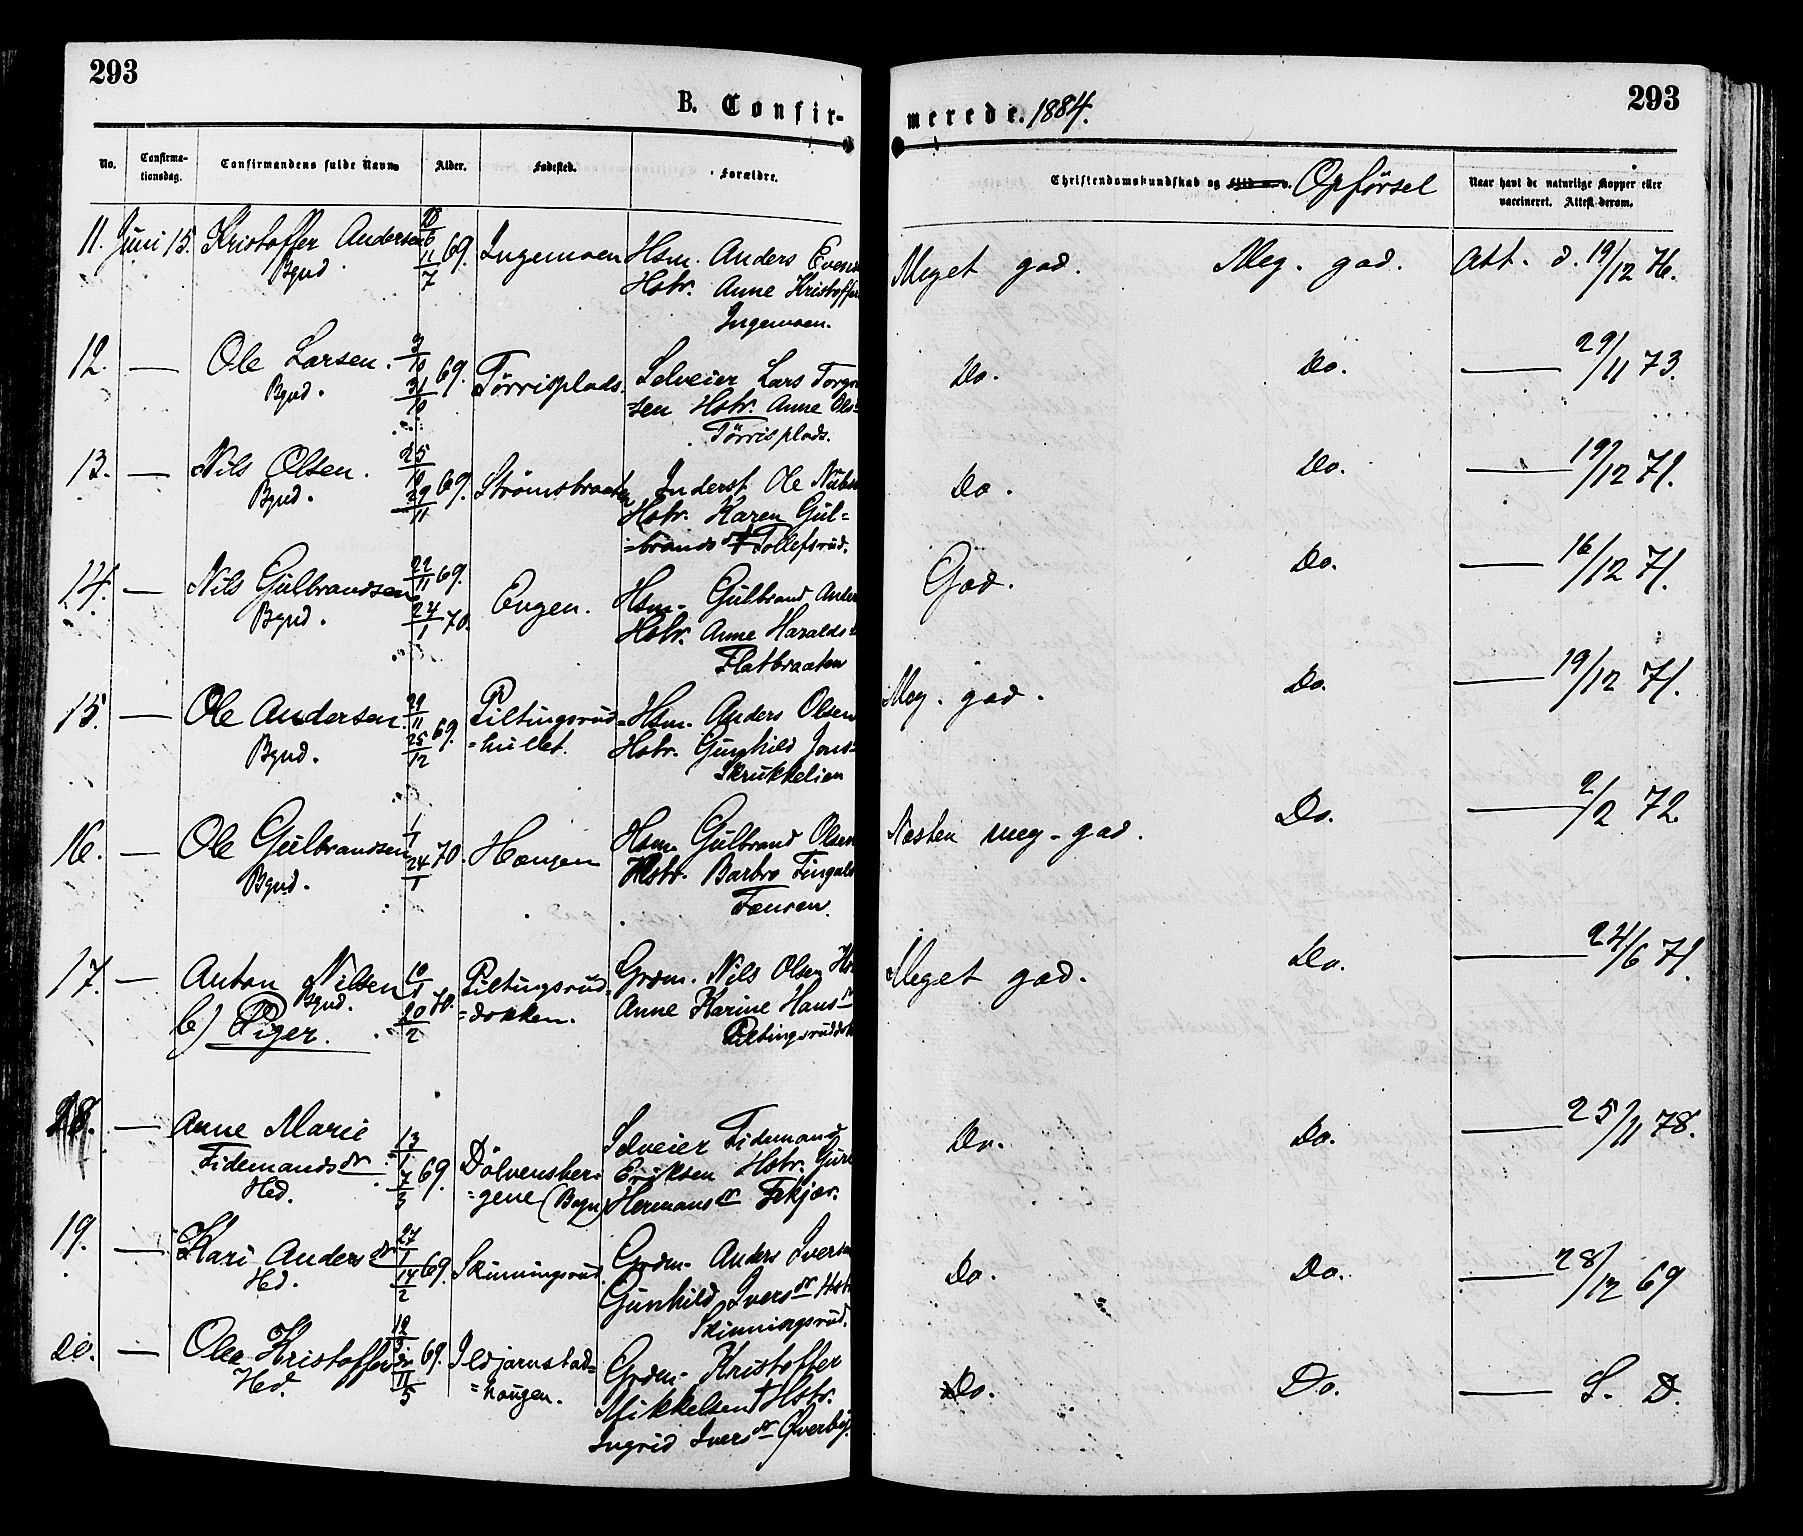 293
293
B. Confir-
merede. 1884.
No.
Confirma-
tionsdag.
Confirmandens fulde Navn
Alder.
Fødested.
Forældre.
Christendomskundskab og Flid Opførsel
Naar havt de naturlige Kopper eller
vaccineret. Attest derom.
11. Juni 15. Kristoffer Andersen 69. Ingemoen Hsm. Anders Evens Meget god. Meg. god. Att. d. 19/12 76.
Bgnd 11/7 Hstr. Anne Kristoffer
Ingemoen.
12. — Ole Larsen. 3/10 69. Tørrisplads. Selveier Lars Torgr Do. Do. — 29/11 73.
Bgnd. 31/10 -sen Hstr. Anne Ols-
Tørrisplads.
13. — Nils Olsen. 25/10 69. Strømsbraaten Inderst Ole Nils Do. Do. — 19/12 71.
Bgnd. 29/11 Hstr. Karen Gul=
=brandsdr Tollefsrud.
14. — Nils Gulbrandsen 22/11 69. Engen. Hsm. Gulbrand Ander God. Do. — 16/12 71.
Bgnd. 24/1 70. Hstr. Anne Haralds=
Flatbraaten
15. — Ole Andersen 29/11 69. Piltingsrud= Hsm. Anders Olsen Meg. god. Do. — 19/12 71.
Bgnd. 25/12 =hullet. Hstr. Gunhild Jons=
Skrukkelien
16. — Ole Gulbrandsen 1/1 70. Haugen Hsm. Gulbrand Olsen Næsten meg. god. Do. — 2/2 72
Bgnd. 24/1 Hstr. Barbro Fingals
17. — Anton Nilsen 10/1 70. Piltingsrud= Grdm. Nils Olsen Hs Meget god. Do. — 24/6 71.
Bgnd. 20/2 =dokken. Anne Karine Hansdr
Piltingsruddok
b) Piger.
18. — Anne Marie 13/1 69. Dølvensber= Selveier Fidemand Do. Do. — 25/11 78.
Fidemandsdr 7/3 =gene (Bagn) Eriksen Hstr. Guri
Hed. Hermansdr Fekjær.
19. — Kari Andersdr 27/1 69. Skinningsrud. Grdm. Anders Iversen Do. Do. — 28/12 69
Hd. 14/2 Gunhild Iversdr Hstr
Skinningsrud.
20. — Olea Kristoffersdr 69. Ildjarnstad= Grdm. Kristoffer Do. Do. — S. D.
Hed. 11/5 =haugen. Mikkelsen † Hstr.
Ingrid Iversdr Øverby.